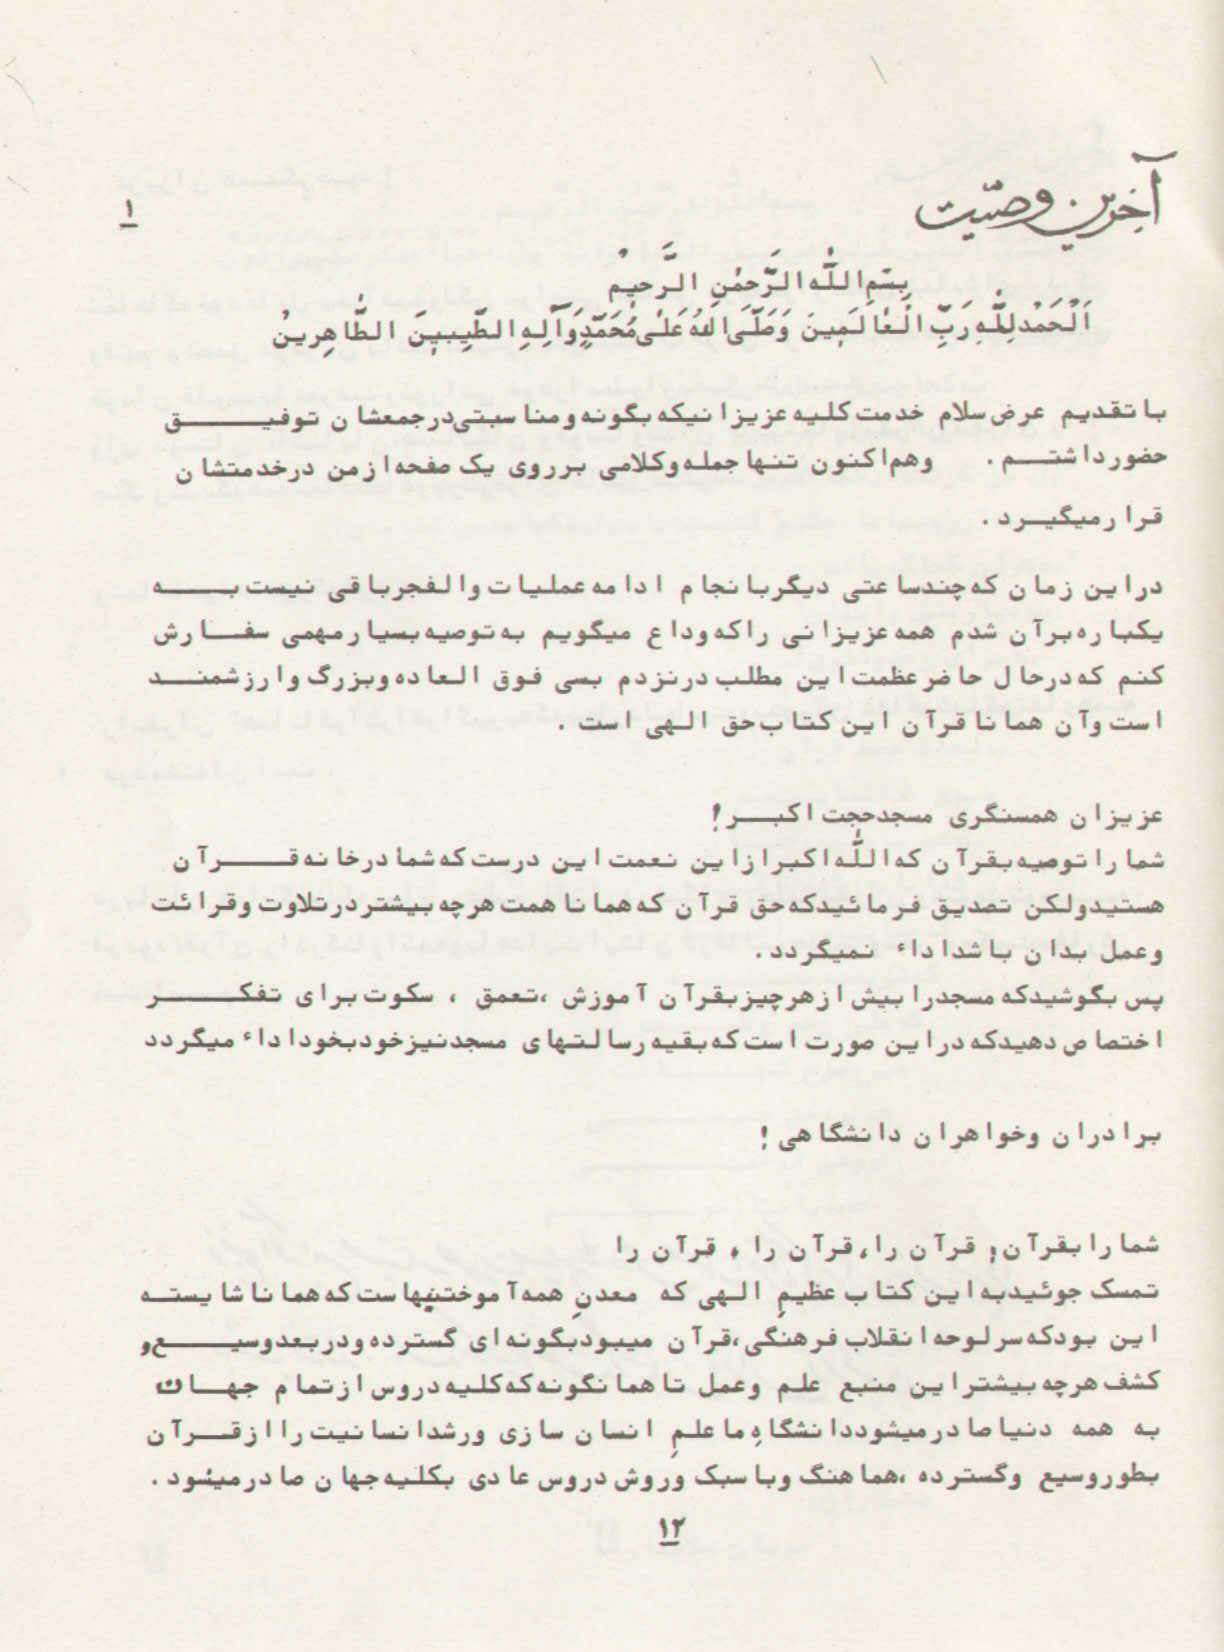 آخرین وصیّت
۱
بِسْمِ اللّٰهِ الرَّحْمٰنِ الرَّحیٖمِ
اَلْحَمْدُ لِلّٰهِ رَبِّ الْعٰالَمیٖنَ وَصَلَّی اللهُ عَلٰی مُحَمَّدٍ وَآلِهِ الطَّیِبیٖنَ الطّٰاهِریٖنْ
با تقدیم عرض سلام خدمت کلیه عزیزانیکه بگونه و مناسبتی در جمعشان توفیق
حضور داشتم . و هم اکنون تنها جمله و کلامی بر روی یک صفحه از من در خدمتشان
قرار میگیرد .
در این زمان که چند ساعتی دیگر با نجام ادامه عملیات والفجر باقی نیست به
یکباره بر آن شدم همه عزیزانی را که وداع میگویم به توصیه بسیار مهمی سفارش
کنم که در حال حاضر عظمت این مطلب در نزدم بسی فوق العاده و بزرگ و ارزشمند
است و آن همانا قرآن این کتاب حق الهی است .
عزیزان همسنگری مسجد حجت اکبر !
شما را توصیه بقرآن که اللّٰه اکبر از این نعمت این درست که شما در خانه قرآن
هستید ولکن تصدیق فرمائید که حق قرآن که همانا همت هرچه بیشتر در تلاوت و قرائت
و عمل بدان باشد اداء نمیگردد .
پس بگوشید که مسجد را بیش از هر چیز بقرآن آموزش ، تعمق ، سکوت برای تفکر
اختصاص دهید که در این صورت است که بقیه رسالتهای مسجد نیز خود بخود اداء میگردد
برادران و خواهران دانشگاهی !
شما را بقرآن ، قرآن را ، قرآن را ، قرآن را
تمسک جوئید به این کتاب عظیمِ الهی که معدنِ همه آموختنیهاست که همانا شایسته
این بود که سر لوحه انقلاب فرهنگی ، قرآن میبود بگونه ای گسترده و در بعد وسیع و
کشف هرچه بیشتر این منبع علم و عمل تا همانگونه که کلیه دروس از تمام جهات
به همه دنیا صادر میشود دانشگاهِ ما علمِ انسان سازی و رشد انسانیت را از قرآن
بطور وسیع و گسترده ، هماهنگ و با سبک و روش دروس عادی بکلیه جهان صادر میشود .
۱۲